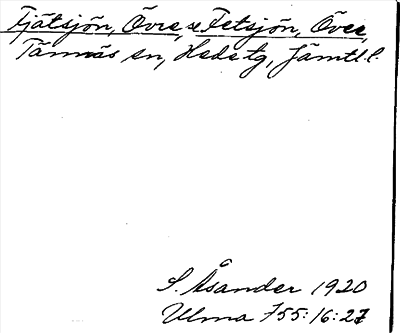 Tjätsjön, Övre, se Fetsjön, Övre,
Tännäs sn, Hede tg, Jämtl. l.
S. Åsander 1920
Ulma 755:16:27